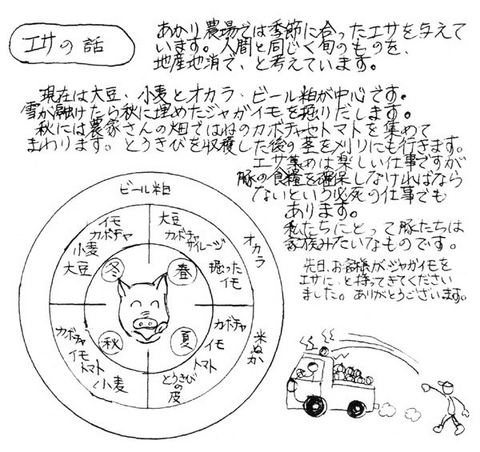 エサの話
あかり農場では季節に合ったエサを与えて
います。人間と同じく旬のものを、
地産地消で、と考えています。
現在は大豆、小麦とオカラ、ビール粕が中心です。
雪が融けたら秋に埋めたジャガイモを掘りだします。
秋には農家さんの畑ではねのカボチャやトマトを集めて
まわります。とうきびを収穫した後の茎を刈りにも行きます。
エサ集めは楽しい仕事ですが
豚の食糧を確保しなければなら
ないという必死の仕事でも
あります。
私たちにとって豚たちは
家族みたいなものです。
先日、お客様がジャガイモを
エサに、と持ってきてください
ました。ありがとうございます。
ビール粕
オカラ
米ぬか
冬
イモ
カボチャ
小麦
大豆
春
大豆
カボチャ
サイレージ
掘った
イモ
夏
カボチャ
イモ
トマト
とうきび
の皮
秋
カボチャ
イモ
トマト
小麦